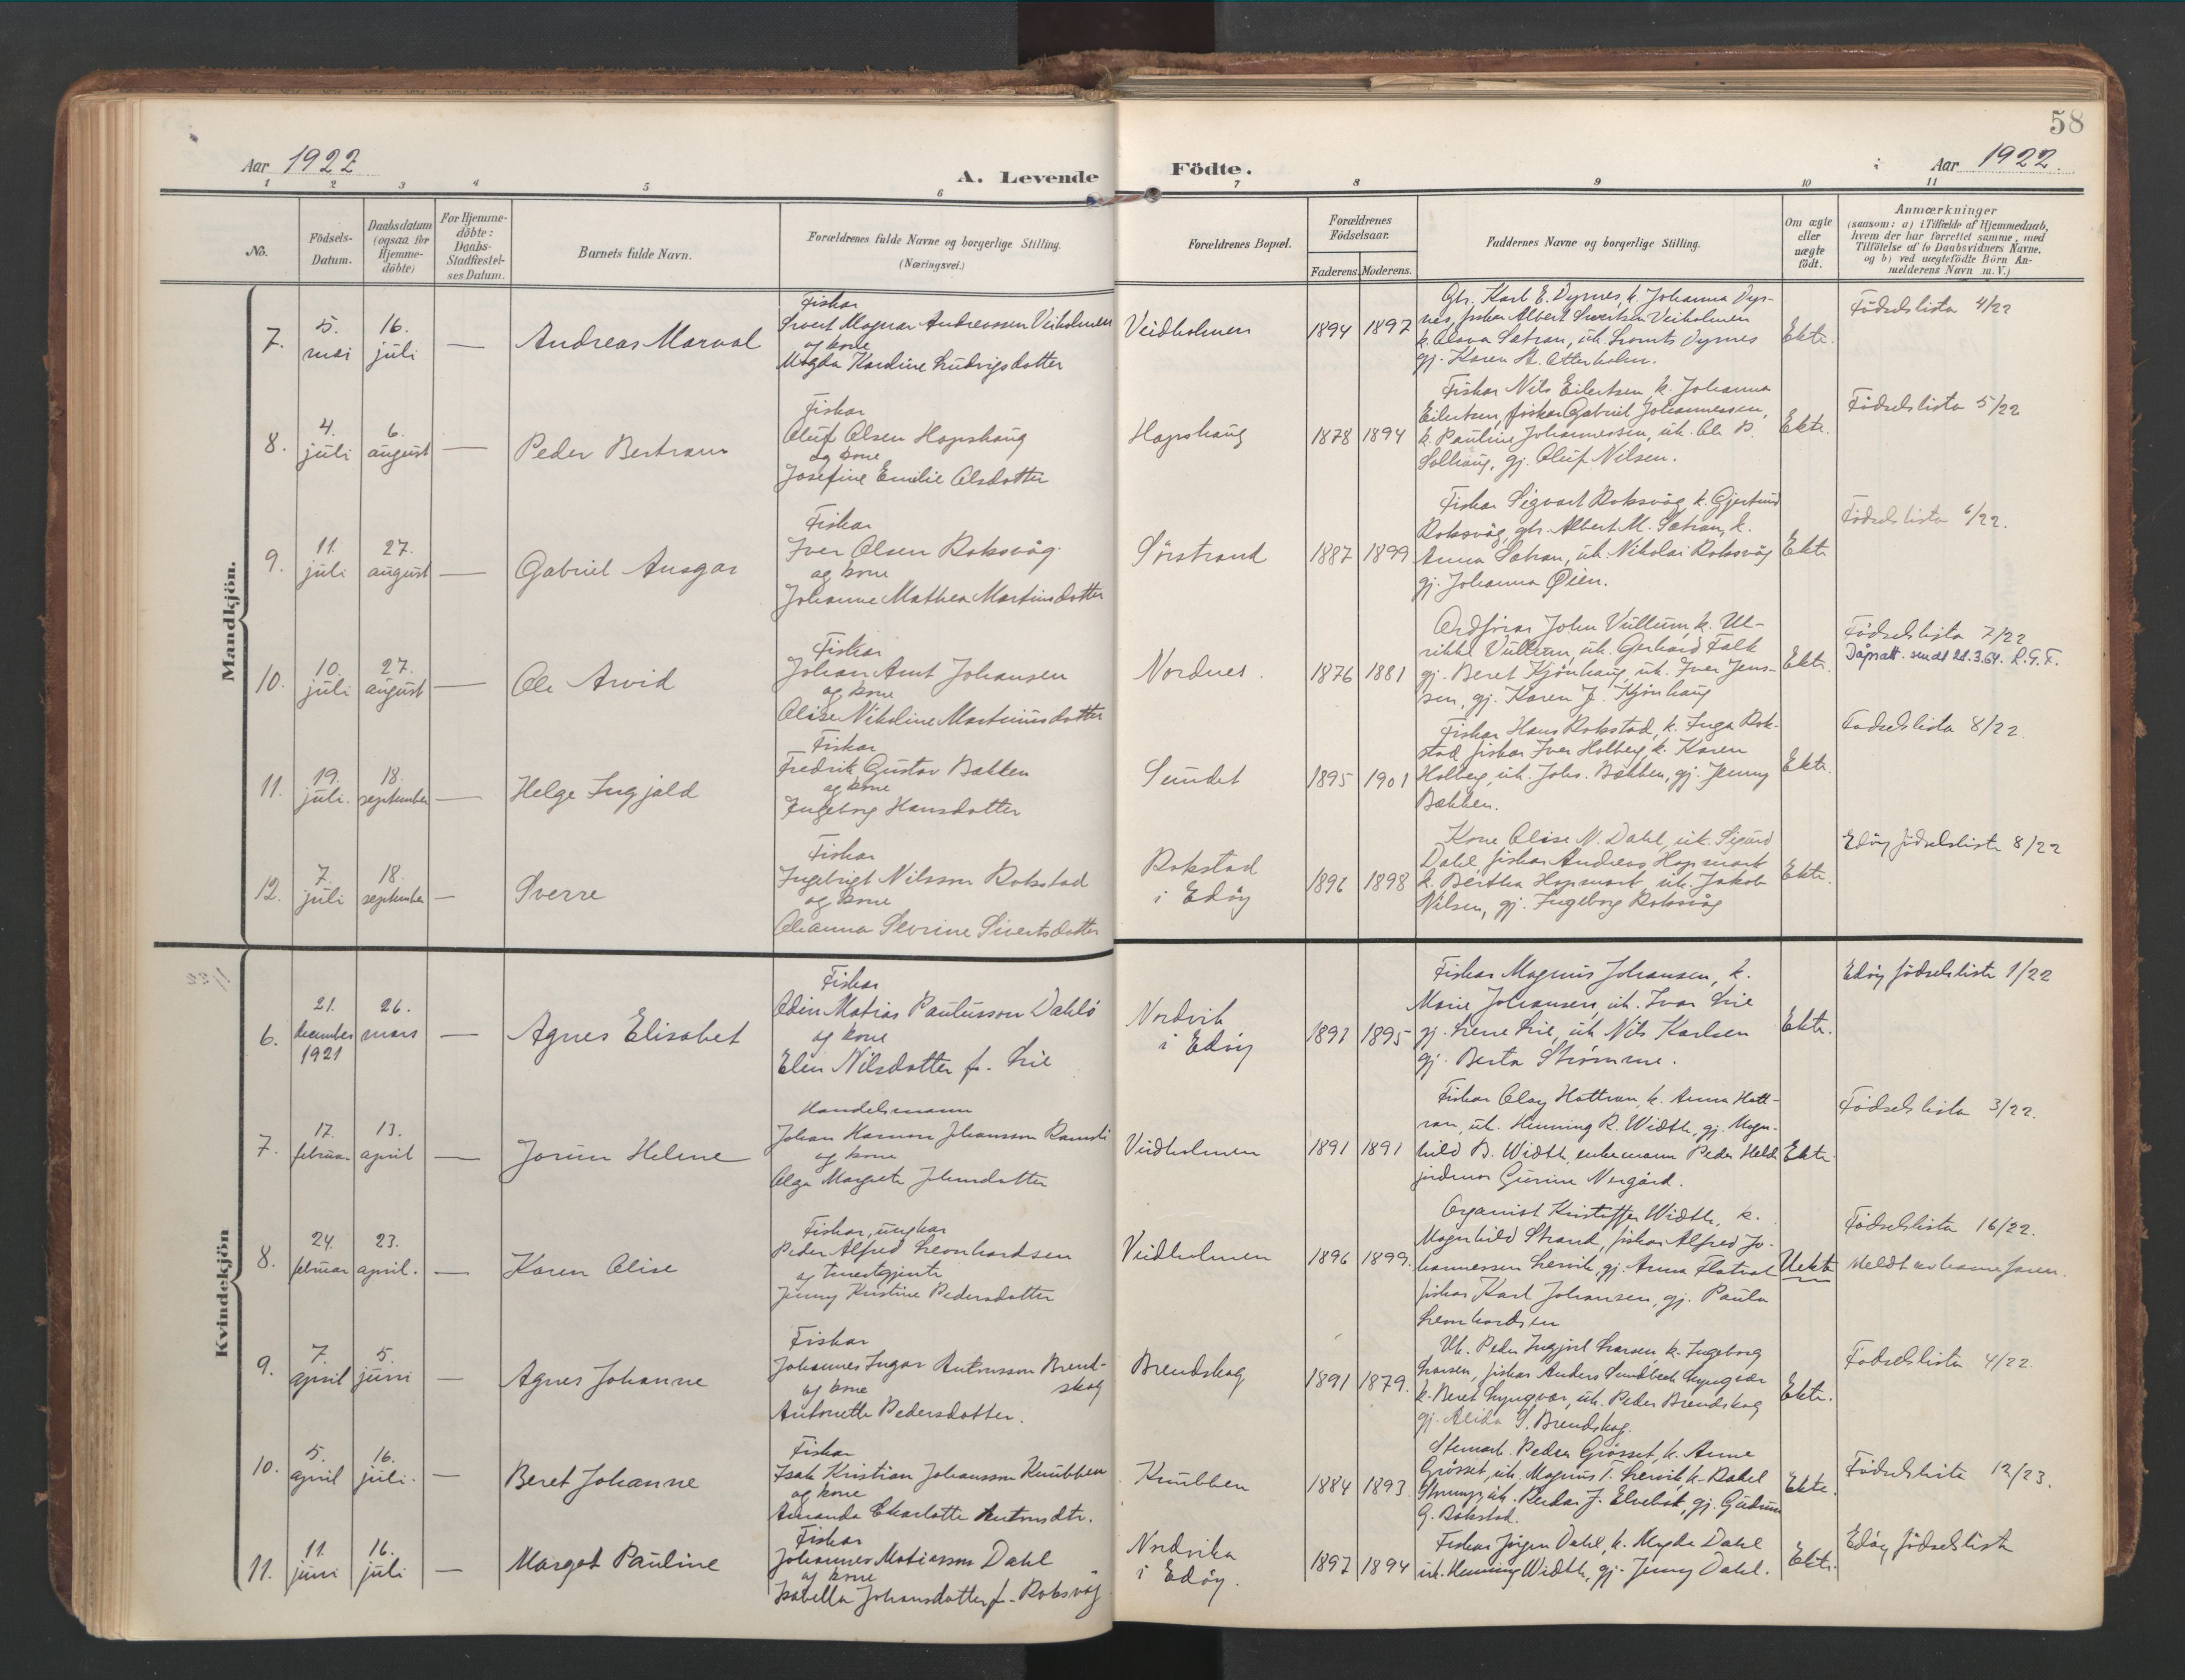 58
Aar 1922
A. Levende Födte.
Aar 1922.
1 2 3 4 5 6 7 8 9 10 11
No.
Födsels-
Datum.
Daabsdatum
(ogsaa for
Hjemme-
döbte)
For Hjemme-
döbte:
Daabs-
Stadfæstel-
ses Datum.
Barnets fulde Navn.
Forældrenes fulde Navne og borgerlige Stilling.
(Næringsvei.)
Forældrenes Bopæl.
Forældrenes
Födselsaar.
Faderens. Moderens.
Faddernes Navne og borgerlige Stilling.
Om ægte
eller
uægte
født.
Anmærkninger
(saasom: a) i Tilfælde af Hjemmedaab,
hvem der har forrettet samme, med
Tilföielse af to Daabsvidners Navne.
og b) ved uægtefödte Börn An-
melderens Navn m. V.)
Mandkjön.
7.
5.
mai
16.
juli
—
Andreas Marval
Fiskar
Sivert Magnar Andreassen Veiholmen
og kone
Magda Kardine Ludvigsdotter
Veidholmen
1894 1897
Gbr. Karl E. Dyrnes, k. Johanna Dyr-
nes, fiskar Albert Sivertsen Veiholmen
k. Olava Sætran, uk. Dyrnes
gj. Karen Otterholm.
Ekte.
Födselslista 4/22
8.
4.
juli
6.
august
—
Peder Bertram
Fiskar
Oluf Olsen Hopshaug
og kone
Josefine Emilie Olsdotter
Hopshaug
1878 1894
Fiskar Nils Eilertsen, k. Johanna
Eilertsen, fiskar Gabriel Johannessen,
k. Pauline Johannessen, uk. Ole P.
Solhaug, gj. Oluf Nilsen.
Ekte.
Födselslista 5/22
9.
11.
juli
27.
august
—
Gabriel Ansgar
Fiskar
Iver Olsen Roksvåg
og kone
Johanne Mathea Martinsdotter
Sörstrand
1887 1899
Fiskar Sigvart Roksvåg, k. Gjertrud
Roksvåg, gbr. Albert M. Sætran, k.
Anna Sætran, uk. Nikolai Roksvåg
gj. Johanna Øien.
Ekte
Födselslista 6/22.
10.
10.
juli
27.
august
—
Ole Arvid
Fiskar
Johan Arnt Johansen
og kone
Olise Nikoline Martinusdotter
Nordnes.
1876 1881
Ordförar John Vullum, k. Ul-
rikke Vullum, uk. Gerhard Falk
gj. Beret Kjönhaug, uk. Iver Jens-
sen, gj. Karen J. Kjönhaug
Ekte.
Födselslista 7/22
Dåpsatt. sendt 21.3.64. R.G.F.
11.
19.
juli.
18.
september
—
Helge Ingjald
Fiskar
Fredrik Gustav Bakken
og kone
Ingeborg Hansdotter
Sundet
1895 1901
Fiskar Hans Rokstad, k. Inga Rok-
stad, fiskar Iver Holberg, k. Karen
Holberg, uk. Johs. Bakken, gj. Jenny
Bakken.
Ekte.
Födselslista 8/22.
12.
7.
juli
18.
september
—
Sverre
Fiskar
Ingebrigt Nilsson Rokstad
og kone
Olianna Sevrine Sivertsdotter
Rokstad
i Edöy
1896 1898
Kone Olise N. Dahl, uk. Sigurd
Dahl, fiskar Andreas Hopmark
k. Bertha Hopmark, uk. Jakob
Nilsen, gj. Ingeborg Roksvåg
Ekte.
Edöy födselsliste 8/22
Kvindekjön
6.
21.
december
1921
26.
mars
—
Agnes Elisabet
Fiskar
Odin Matias Paulusson Dahlö
og kone
Elin Nilsdotter f. Lie
Nordvik
i Edöy
1893 1895
Fiskar Magnus Johansen, k.
Marie Johansen, uk. Ivar Lie
gj. Lene Lie, uk. Nils Karlsen
gj. Berta Strömme.
Ekte.
Edöy födselsliste 1/22
7.
17.
februar
13.
april
—
Jorun Helene
Handelsmann
Johan
og kone
Olga Margrete Johnsdotter
Veidholmen
1891 1891
Fiskar Olav Hattran, k. Anna Hatt-
ran, uk. Henning R. Width, gj. Magn-
hild B. Width, enkemann Peder Held
jordmor Gurine Nergård.
Ekte
Födselslista 3/22.
8.
24.
februar
23.
april.
—
Karen Olise
Fiskar, ungkar
Peder Alfred Leonhardsen
og tenestgjente
Jenny Kristine Pedersdotter
Veidholmen
1896 1899.
Organist Kristoffer Width, k.
Magnhild Strand, fiskar Alfred Jo-
hannessen Lervik, gj. Anna Flatval
fiskar Karl Johansen, gj. Paula
Leonhardsen
Uekte
Födselslista 16/22.
Meldt av barnefaren.
9.
7.
april
5.
juni
—
Agnes Johanne
Fiskar
Johannes Ingar Antonsson Brend-
skag
og kone
Antonette Pedersdotter.
Brendskag
1891 1879.
Uk. Peder Ingjort Larsen, k. Ingeborg
Larsen, fiskar Anders Sundbeck Lyngvær
k. Beret Lyngvær, uk. Peder Brendskag
gj. Alida S. Brendskag.
Ekte.
Födselslista 4/22.
10.
5.
april
16.
juli.
—
Beret Johanne
Fiskar
Isak Kristian Johansson Knubben
og kone
Amanda Charlotte Antonsdtr.
Knubben
1884 1893.
Peder Grösset, k. Anne
Grösset, uk. Magnus T. Lervik, k. Rakel
uk. Peder J. Elvebak, gj. Gudrun
G. Rokstad.
Ekte.
Födselsliste 12/23.
11.
11.
juni
16.
juli
—
Margot Pauline
Fiskar
Johannes Matiasson Dahl
og kone
Isabella Johansdotter f. Roksvåg
Nordvika
i Edöy.
1897 1894
Fiskar Jörgen Dahl, k. Magda Dahl
uk. Henning Width, gj. Jenny Dahl.
Ekte.
Edöy födselslista